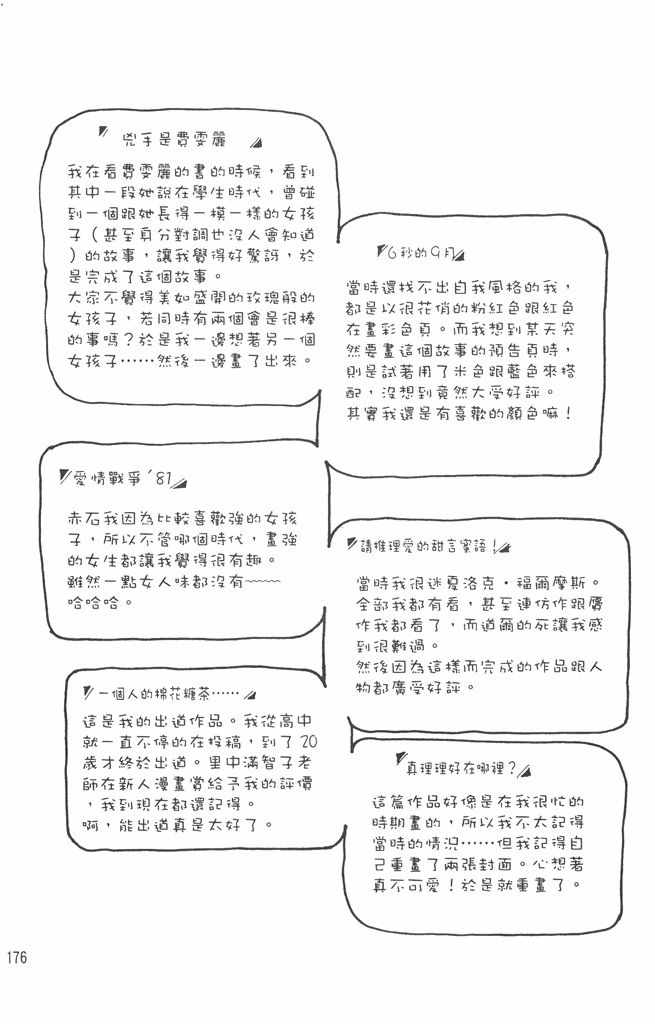 兇手是費雯麗
我在看費雯麗的書的時候，看到
其中一段她說在學生時代，曾碰
到一個跟她長得一模一樣的女孩
子（甚至身分對調也沒人會知道
）的故事，讓我覺得好驚訝，於
是完成了這個故事。
大家不覺得美如盛開的玫瑰般的
女孩子，若同時有兩個會是很棒
的事嗎？於是我一邊想著另一個
女孩子……然後一邊畫了出來。
6秒的9月
當時還找不出自我風格的我，
都是以很花俏的粉紅色跟紅色
在畫彩色頁。而我想到某天突
然要畫這個故事的預告頁時，
則是試著用了米色跟藍色來搭
配，沒想到竟然大受好評。
其實我還是有喜歡的顏色嘛！
愛情戰爭´81
赤石我因為比較喜歡強的女孩
子，所以不管哪個時代，畫強
的女生都讓我覺得很有趣。
雖然一點女人味都沒有~~~~
哈哈哈。
請推理愛的甜言蜜語！
當時我很迷夏洛克・福爾摩斯。
全部我都有看，甚至連仿作跟贋
作我都看了，而道爾的死讓我感
到很難過。
然後因為這樣而完成的作品跟人
物都廣受好評。
一個人的棉花糖茶……
這是我的出道作品。我從高中
就一直不停的在投稿，到了20
歲才終於出道。里中滿智子老
師在新人漫畫賞給予我的評價
，我到現在都還記得。
啊，能出道真是太好了。
真理理好在哪裡？
這篇作品好像是在我很忙的
時期畫的，所以我不太記得
當時的情況……但我記得自
己重畫了兩張封面。心想著
真不可愛！於是就重畫了。
176